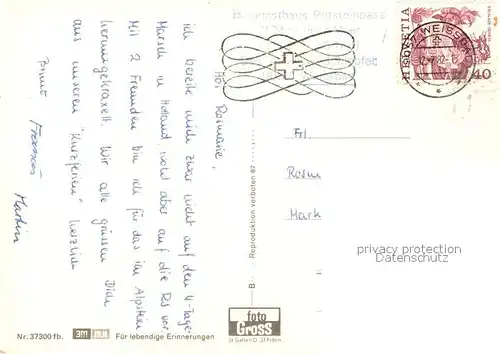 Hoi Rosmarie,
ich bereite mich zwar nicht auf den 4-Tage-
Marsch in Holland, wohl aber auf die RS vor.
Mit 2 Freunden bin ich für das im Alpstein
herumgekraxelt. Wir alle grüssen Dich
aus unseren "Kurzferien" herzlich
Martin
Berggasthaus Rotsteinpass
HELVETIA
40
9057 WEISSBAD
Frl.
Rosm
Mark
privacy protection
Datenschutz
Reproduktion verboten
B
foto
Gross
St Gallen O. St Fiden
Nr. 37300 fb.
3M
Für lebendige Erinnerungen